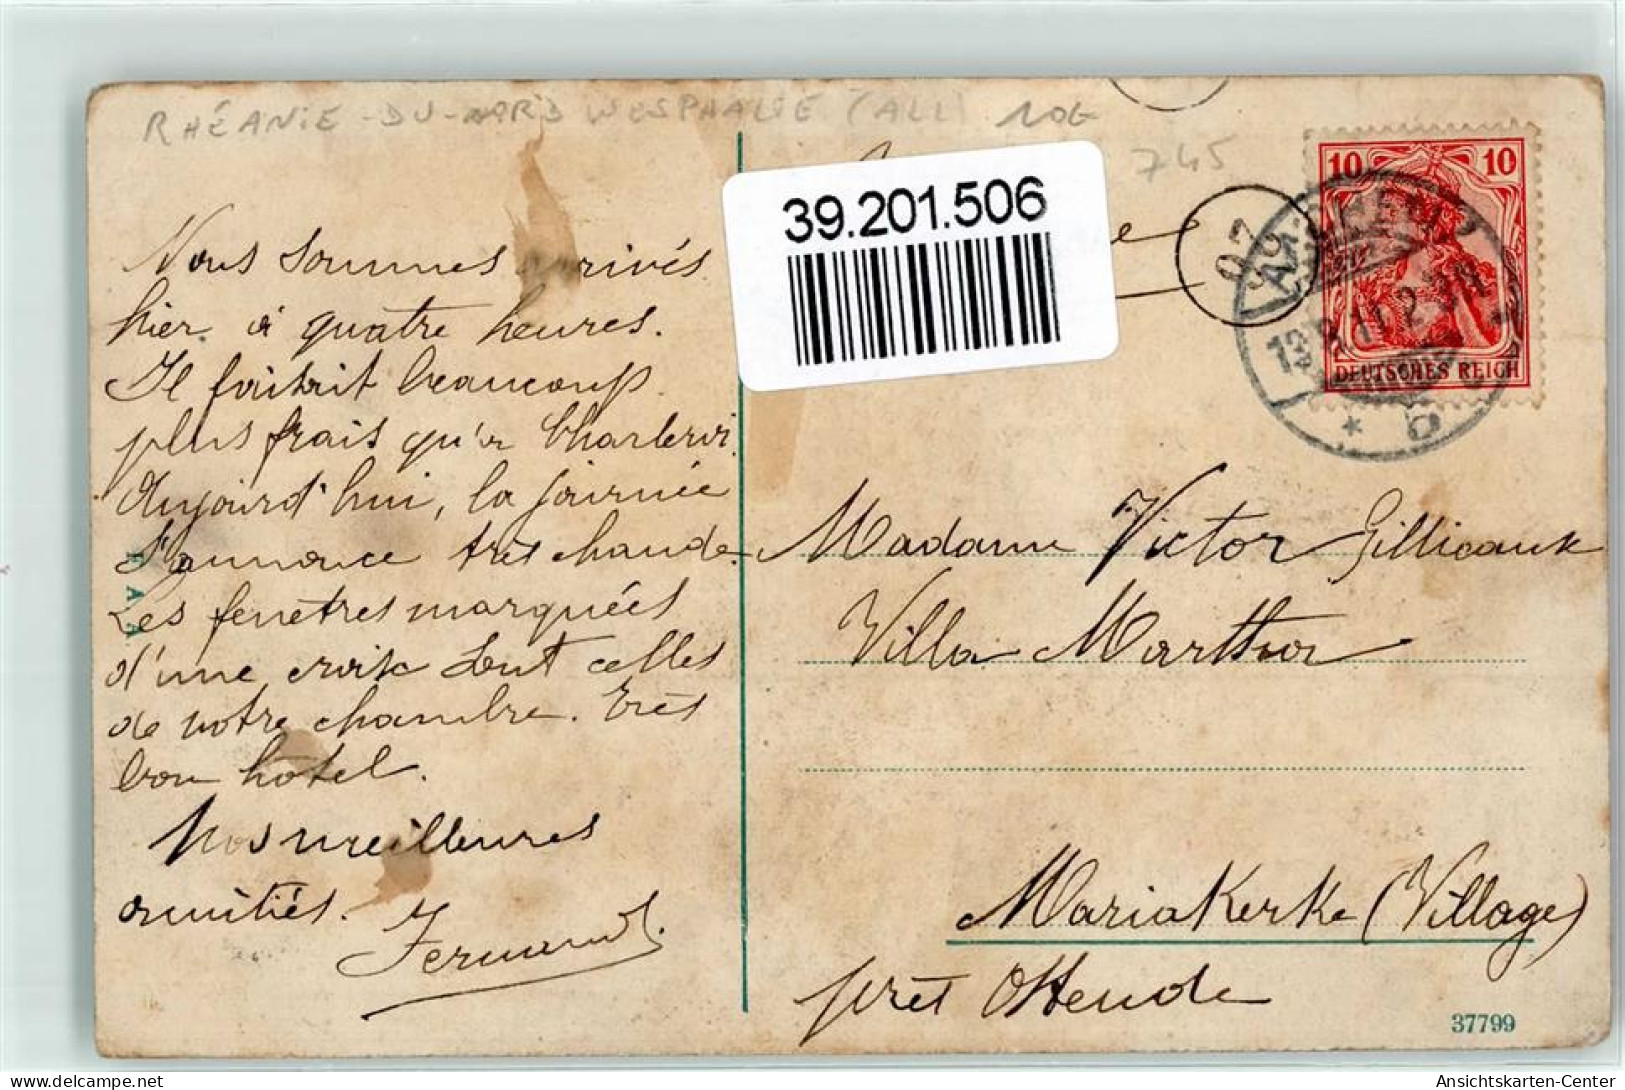 RHÉANIE-DU-NORD WESPHALIE (ALL) 10G
745
39.201.506
07
10 10
DEUTSCHES REICH
Nous sommes arrivés
hier à quatre heures.
Il faitrait beaucoup
plus frais qu'à Charleroi.
Aujourd'hui, la journée
s'annonce très chaude.
Les fenêtres marquées
d'une croix sont celles
de notre chambre. Très
bon hôtel.
Nos meilleures
amitiés.
Fernand.
Madame Victor Gillieaux
Villa Martha
Mariakerke (Village)
près Ostende
37799
Ansichtskarten-Center